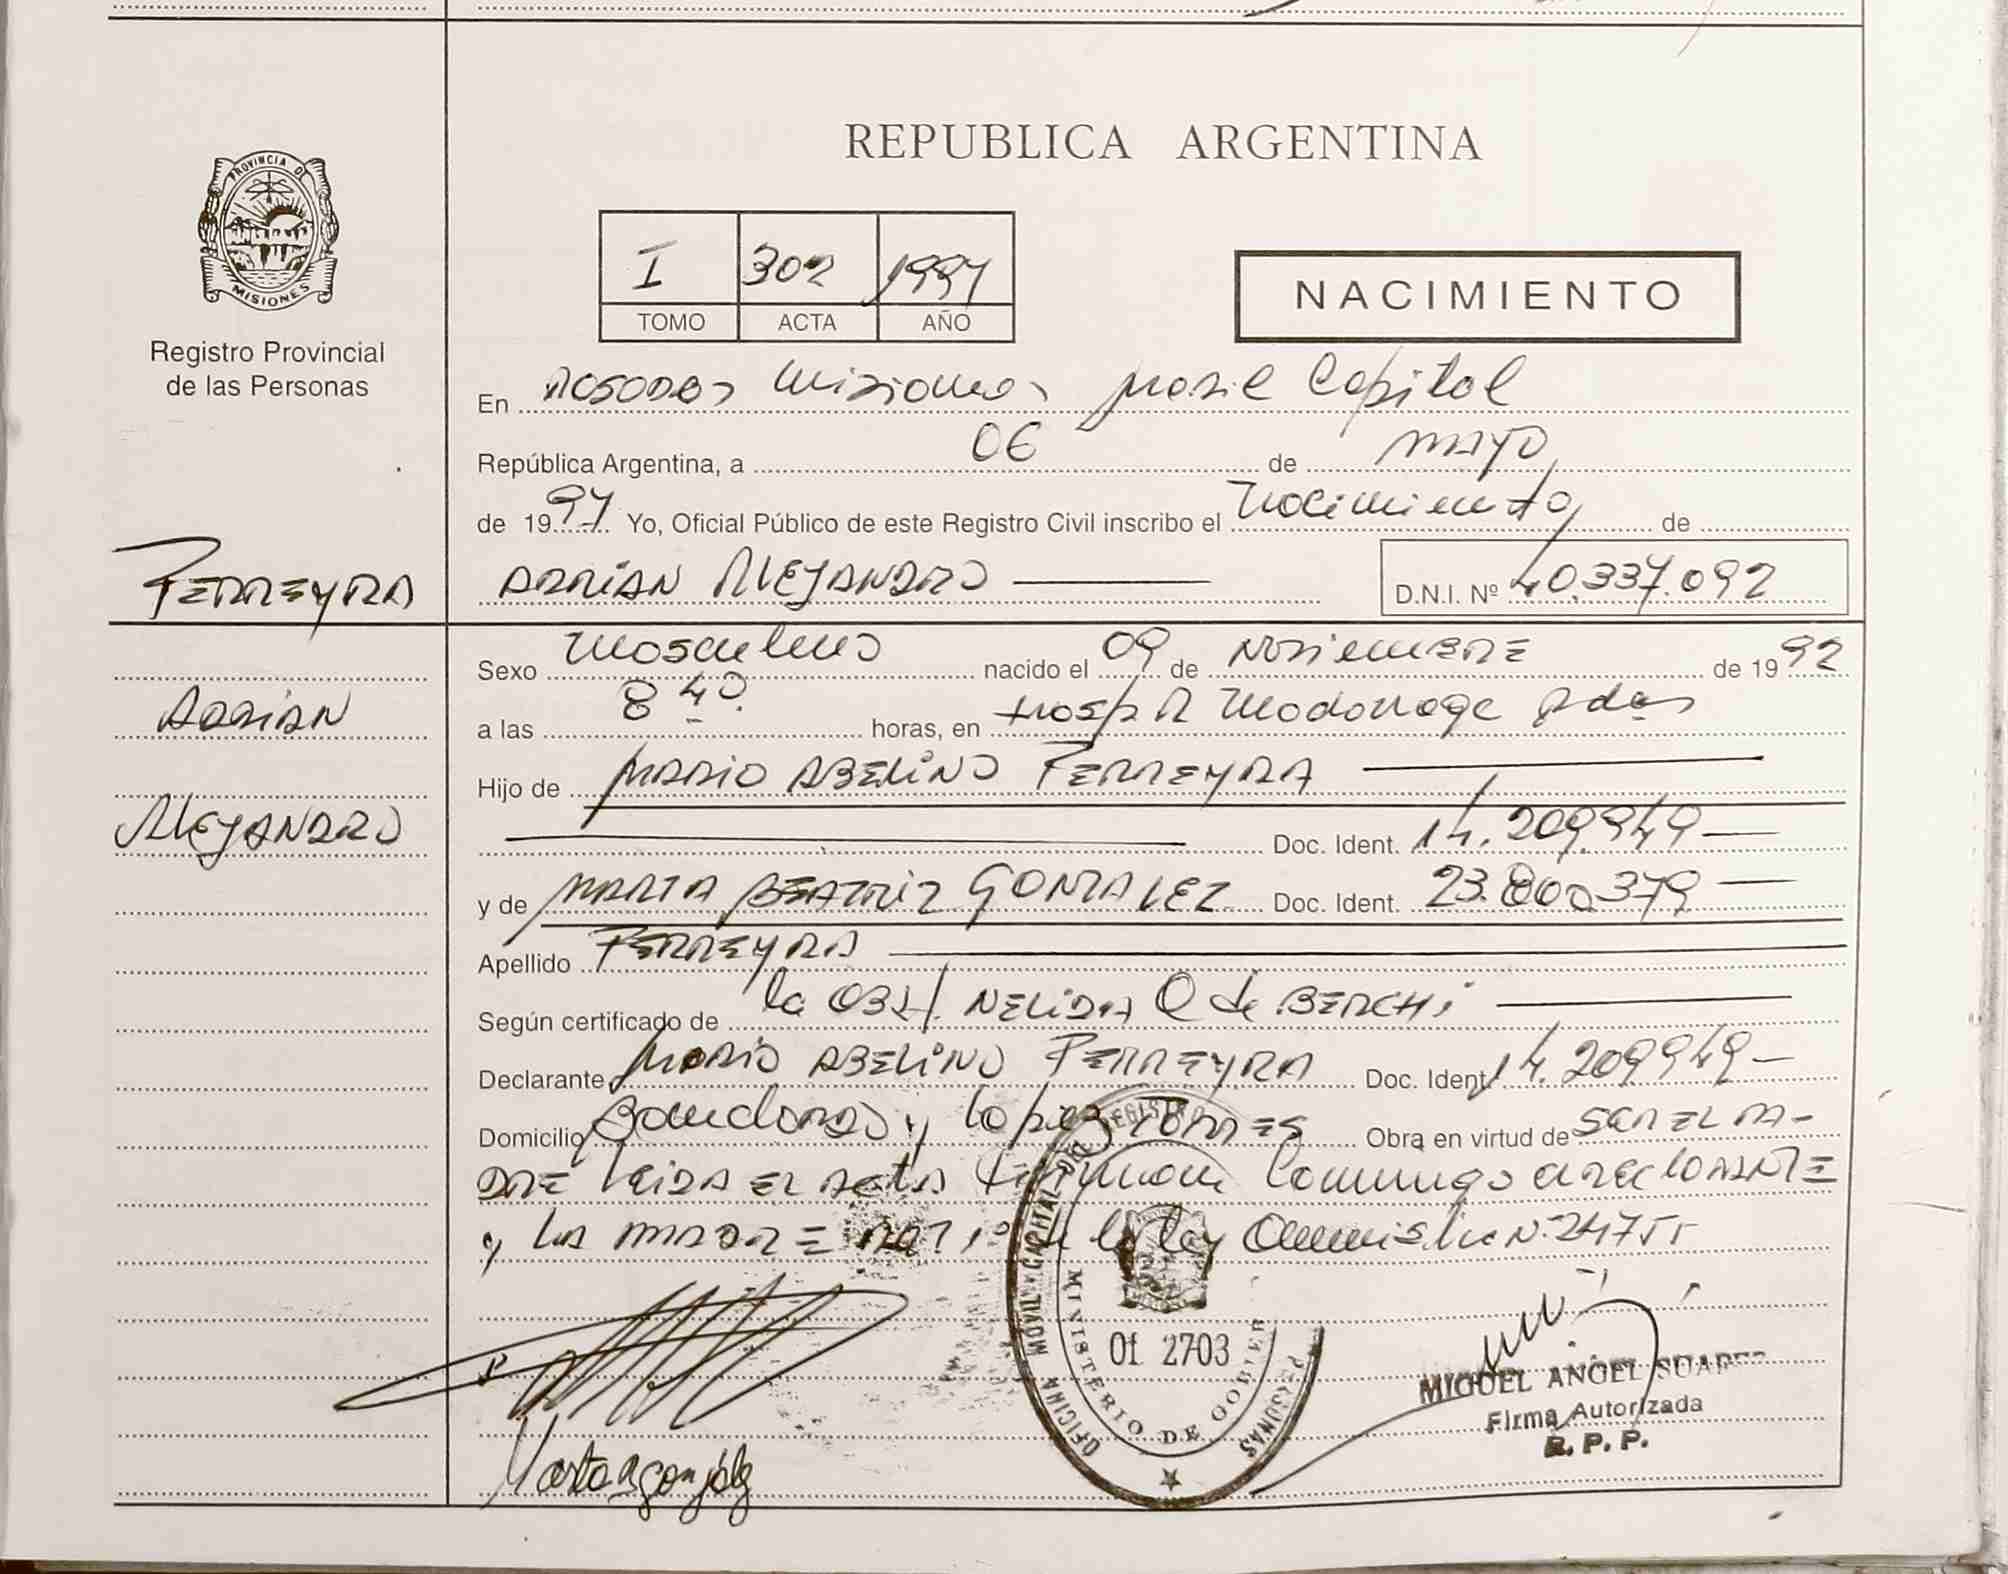 PROVINCIA DE
MISIONES
Registro Provincial
de las Personas
REPUBLICA ARGENTINA
I 302 1997
TOMO ACTA AÑO
NACIMIENTO
En Posadas Misiones Capital
República Argentina, a 06 de mayo
de 1997 Yo, Oficial Público de este Registro Civil inscribo el Nacimiento de
FERREYRA ADRIAN ALEJANDRO D.N.I. Nº 40.337.092
Sexo Masculino nacido el 09 de Noviembre de 1992
ADRIAN
a las 8 40 horas, en Hosp R Madariaga Pdas
Hijo de MARIO ABELINO FERREYRA
ALEJANDRO
Doc. Ident. 14.209.949
y de MARTA BEATRIZ GONZALEZ Doc. Ident. 23.000.379
Apellido FERREYRA
Según certificado de la OBST. NELIDA Q de BERCHI
Declarante MARIO ABELINO FERREYRA Doc. Ident. 14.209949
Domicilio y Lopez TORRES Obra en virtud de SER EL PA-
DRE LEIDA EL ACTA Firman Conmigo el declarante
y la MADRE de la ley N. 24755
OFICINA MOVIL CAPITAL DEL REGISTRO PERSONAS
MINISTERIO DE GOBIER
Of 2703
MIGUEL ANGEL SUAREZ
Firma Autorizada
R. P. P.
Marta B gonzalez